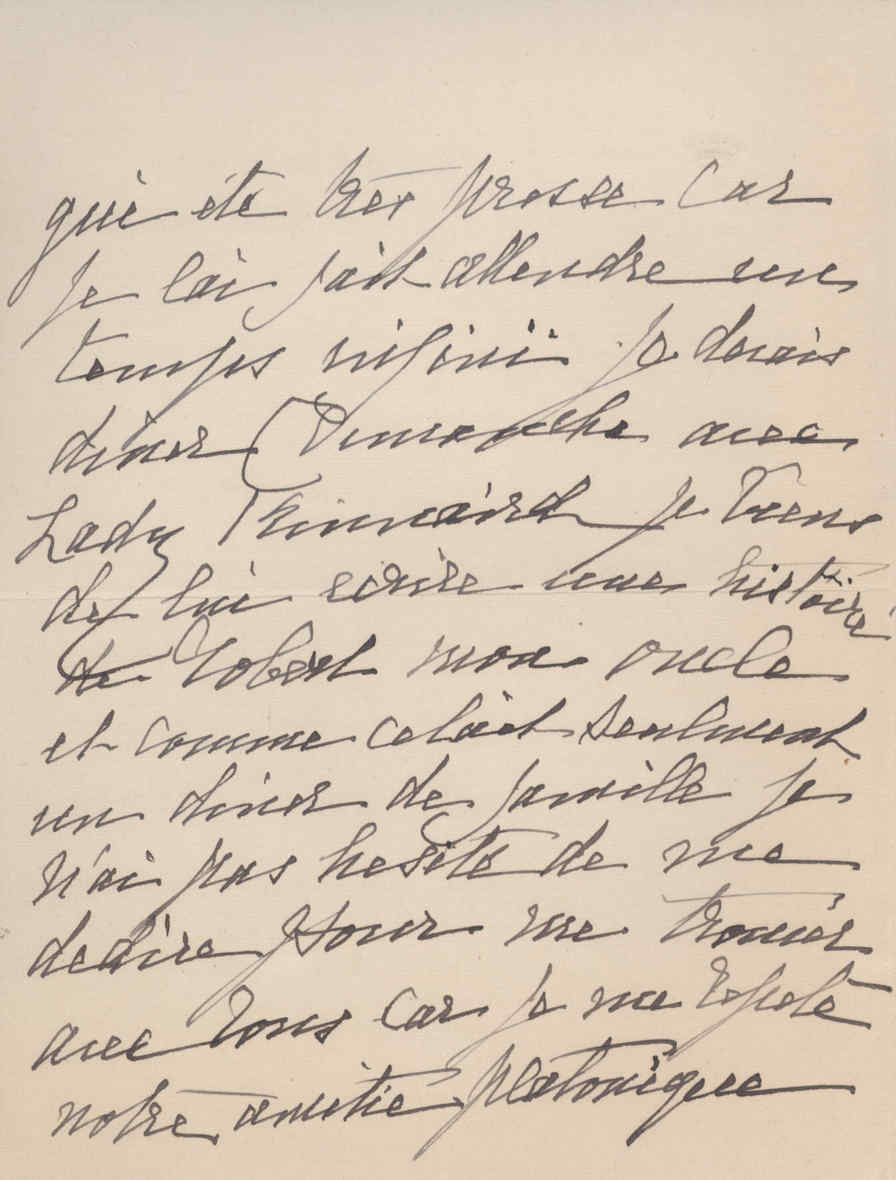 qui été très presse car
je l'ai fait attendre un
temps infini je devais
diner Dimanche avec
Lady Kinnaird je viens
de lui ecrire une histoire
de Robert mon oncle
et comme cetait seulment
un diner de famille je
n'ai pas hesité de me
dedire pour me trouver
avec vous car je me repete
notre amitié platonique